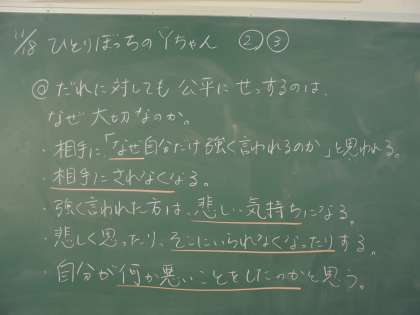 11/18 ひとりぼっちのYちゃん ② ③
@ だれに対しても 公平に せっするのは、
なぜ 大切なのか。
・相手に「なぜ自分だけ強く言われるのか」と思われる。
・相手にされなくなる。
・強く言われた方は、悲しい気持ちになる。
・悲しく思ったり、そこにいられなくなったりする。
・自分が何か悪いことをしたのかと思う。